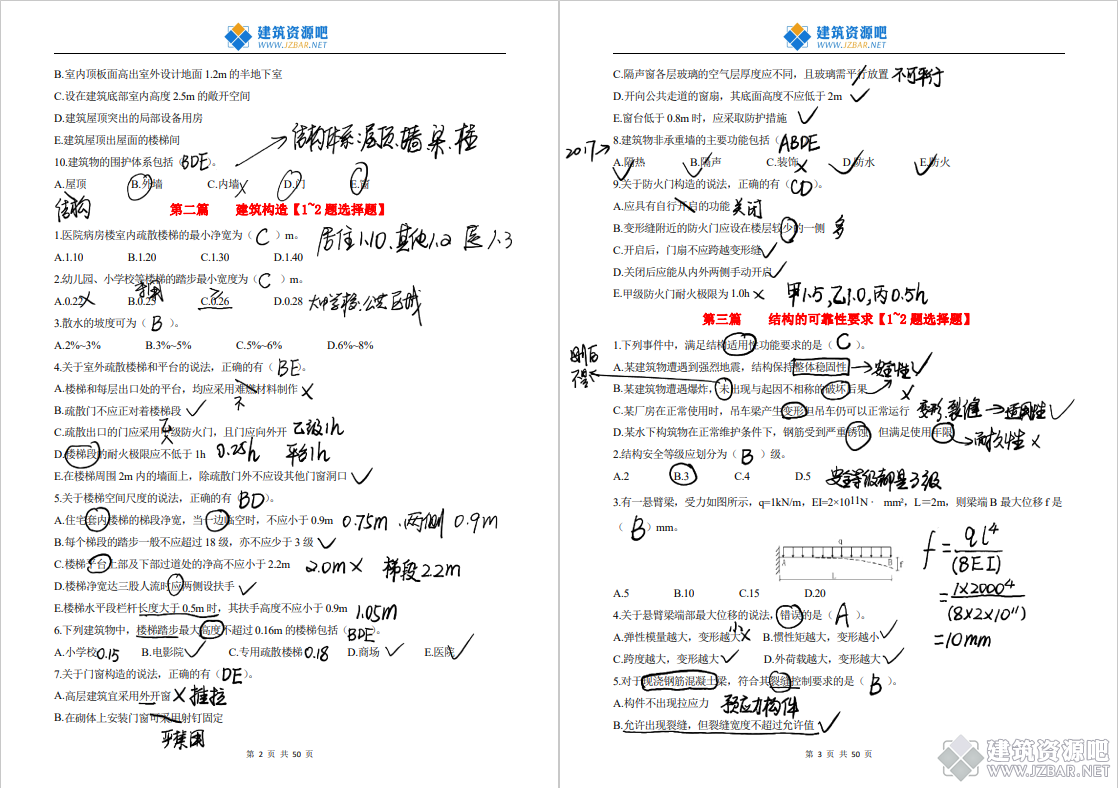 建筑资源吧
WWW.JZBAR.NET
B.室内顶板面高出室外设计地面 1.2m 的半地下室
C.设在建筑底部室内高度 2.5m 的敞开空间
D.建筑屋顶突出的局部设备用房
E.建筑屋顶出屋面的楼梯间
结构体系:屋顶.墙.梁.柱
10.建筑物的围护体系包括（BDE）。
A.屋顶 B.外墙 C.内墙 D.门 E.窗
结构
第二篇 建筑构造【1~2 题选择题】
1.医院病房楼室内疏散楼梯的最小净宽为（ C ）m。
居住1.10.其他1.2 医1.3
A.1.10 B.1.20 C.1.30 D.1.40
2.幼儿园、小学校等楼梯的踏步最小宽度为（ C ）m。
A.0.22 B.0.25 C.0.26 D.0.28
大中学校.公共区域
3.散水的坡度可为（ B ）。
A.2%~3% B.3%~5% C.5%~6% D.6%~8%
4.关于室外疏散楼梯和平台的说法，正确的有（ BE ）。
A.楼梯和每层出口处的平台，均应采用难燃材料制作
不
B.疏散门不应正对着楼梯段
C.疏散出口的门应采用甲级防火门，且门应向外开 乙级1h
乙
D.楼梯段的耐火极限应不低于 1h 0.25h 平台1h
E.在楼梯周围 2m 内的墙面上，除疏散门外不应设其他门窗洞口
5.关于楼梯空间尺度的说法，正确的有（ BD ）。
A.住宅套内楼梯的梯段净宽，当一边临空时，不应小于 0.9m 0.75m .两侧 0.9m
B.每个梯段的踏步一般不应超过 18 级，亦不应少于 3 级
C.楼梯平台上部及下部过道处的净高不应小于 2.2m 2.0m 梯段2.2m
D.楼梯净宽达三股人流时应两侧设扶手
E.楼梯水平段栏杆长度大于 0.5m 时，其扶手高度不应小于 0.9m 1.05m
6.下列建筑物中，楼梯踏步最大高度不超过 0.16m 的楼梯包括（BDE）。
A.小学校 0.15 B.电影院 C.专用疏散楼梯 0.18 D.商场 E.医院
7.关于门窗构造的说法，正确的有（ DE ）。
A.高层建筑宜采用外开窗 推拉
B.在砌体上安装门窗可采用射钉固定
严禁用
第 2 页 共 50 页
建筑资源吧
WWW.JZBAR.NET
C.隔声窗各层玻璃的空气层厚度应不同，且玻璃需平行放置 不可平行
D.开向公共走道的窗扇，其底面高度不应低于 2m
E.窗台低于 0.8m 时，应采取防护措施
8.建筑物非承重墙的主要功能包括（ABDE
2017
A.隔热 B.隔声 C.装饰 D.防水 E.防火
9.关于防火门构造的说法，正确的有（ CD ）。
A.应具有自行开启的功能 关闭
B.变形缝附近的防火门应设在楼层较少的一侧 多
C.开启后，门扇不应跨越变形缝
D.关闭后应能从内外两侧手动开启
E.甲级防火门耐火极限为 1.0h 甲1.5,乙1.0,丙0.5h
第三篇 结构的可靠性要求【1~2 题选择题】
1.下列事件中，满足结构适用性功能要求的是（ C ）。
A.某建筑物遭遇到强烈地震，结构保持整体稳固性 安全性
B.某建筑物遭遇爆炸，未出现与起因不相称的破坏后果
C.某厂房在正常使用时，吊车梁产生变形但吊车仍可以正常运行 变形.裂缝 适用性
D.某水下构筑物在正常维护条件下，钢筋受到严重锈蚀，但满足使用年限 耐久性
2.结构安全等级应划分为（ B ）级。
A.2 B.3 C.4 D.5 安全等级都是3级
3.有一悬臂梁，受力如图所示，q=1kN/m，EI=2×10¹¹N· mm²，L=2m，则梁端 B 最大位移 f 是
（ B ）mm。
q
A B f
L
f = ql⁴/(8EI)
= 1×2000⁴/(8×2×10¹¹)
=10mm
A.5 B.10 C.15 D.20
4.关于悬臂梁端部最大位移的说法，错误的是（ A ）。
A.弹性模量越大，变形越大 小 B.惯性矩越大，变形越小
C.跨度越大，变形越大 D.外荷载越大，变形越大
5.对于现浇钢筋混凝土梁，符合其裂缝控制要求的是（ B ）。
A.构件不出现拉应力 预应力构件
B.允许出现裂缝，但裂缝宽度不超过允许值
第 3 页 共 50 页
建筑资源吧
WWW.JZBAR.NET